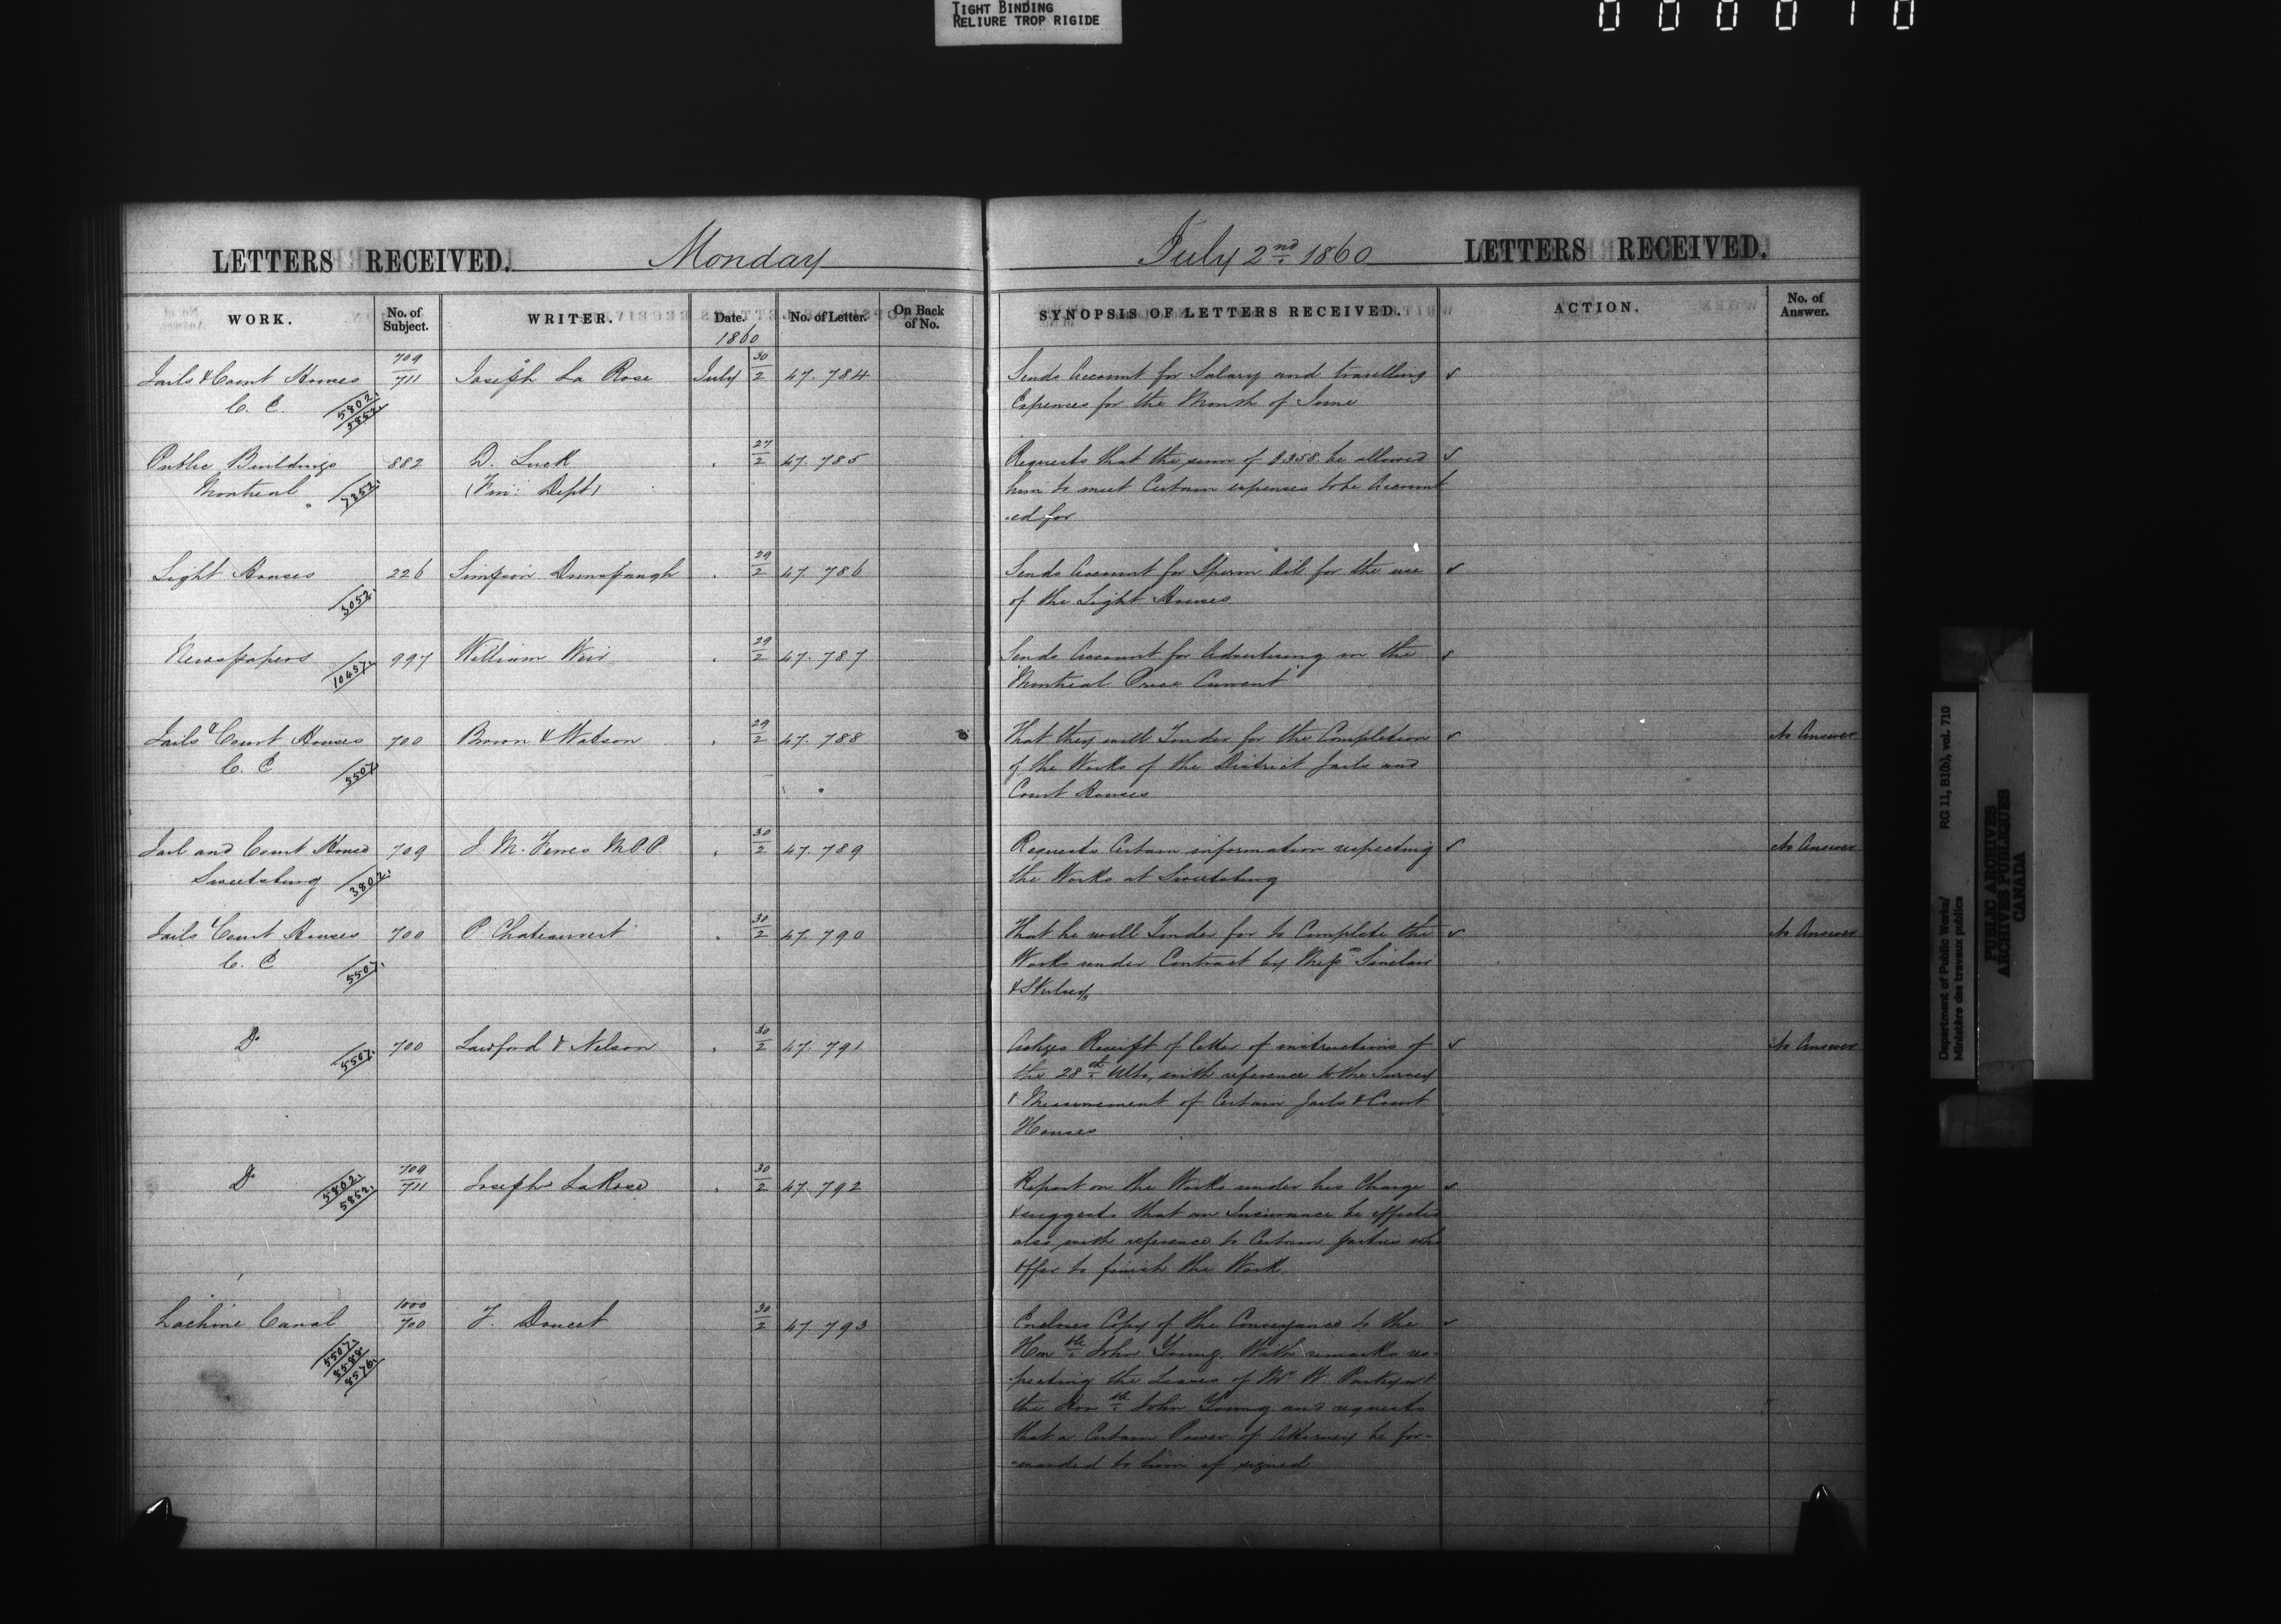 TIGHT BINDING
RELIURE TROP RIGIDE
LETTERS RECEIVED. Monday July 2nd 1860 LETTERS RECEIVED.
WORK. No. of Subject. WRITER. Date. No. of Letter. On Back of No. SYNOPSIS OF LETTERS RECEIVED. ACTION. No. of Answer.
1860
Jails & Court Houses 709/711 Joseph La Rose July 30/2 47.784 Sends Account for Salary and travelling
C. E. 5802. 5852. Expenses for the Month of June
Public Buildings 882 D. Luck " 27/2 47.785 Requests that the sum of $358 be allowed
Montreal 7352. (Fin: Dept) him to meet Certain expenses to be Account
-ed for
Light Houses 226 Simpson Dunspaugh " 29/2 47.786 Sends Account for Sperm Oil for the use
3052. of the Light Houses
Newspapers 997 William Weir " 29/2 47.787 Sends Account for Advertising in the
10457. Montreal Price Current
Jails & Court Houses 700 Brown & Watson " 29/2 47.788 That they will Tender for the Completion No Answer
C. E 5507 of the Works of the District Jails and
Court Houses
Jail and Court House 709 J. M. Ferres M.P.P. " 30/2 47.789 Requests Certain information respecting No Answer
Sweetsburg 3802. the Works at Sweetsburg
Jails & Court Houses 700 P. Chateauvert " 30/2 47.790 That he will Tender for to Complete the No Answer
C. E 5507. Works under Contract by Messrs Sinclair
&
Do 5507. 700 Lawford & Nelson " 30/2 47.791 Ackges Receipt of letter of instructions of No Answer
the 28th Ulto, with reference to the Survey
& Measurement of Certain Jails & Court
Houses
Do 5802. 5852. 709/711 Joseph LaRose " 30/2 47.792 Report on the Works under his Charge
& suggests that an Insurance be effected
also with reference to Certain parties who
offer to finish the Work
Lachine Canal 1000/700 T. Doucet 30/2 47.793 Encloses Copy of the Conveyance to the
5507. 8588 8576. Honble John Young. With remarks res-
-pecting the Leases of Mr W. Parkyn &
the Honble John Young and requests
that a Certain Power of Attorney be for-
-warded to him if signed
Department of Public Works/ RG 11, B1(b), vol. 710
Ministère des travaux publics
PUBLIC ARCHIVES
ARCHIVES PUBLIQUES
CANADA